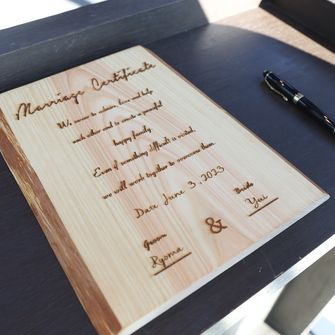 Marriage Certificate
We swear to
each other and to create a
happy family.
Even if something difficult is
we will work together to overcome them.
Date June 3, 2023
Groom & Bride
Ryoma Yui